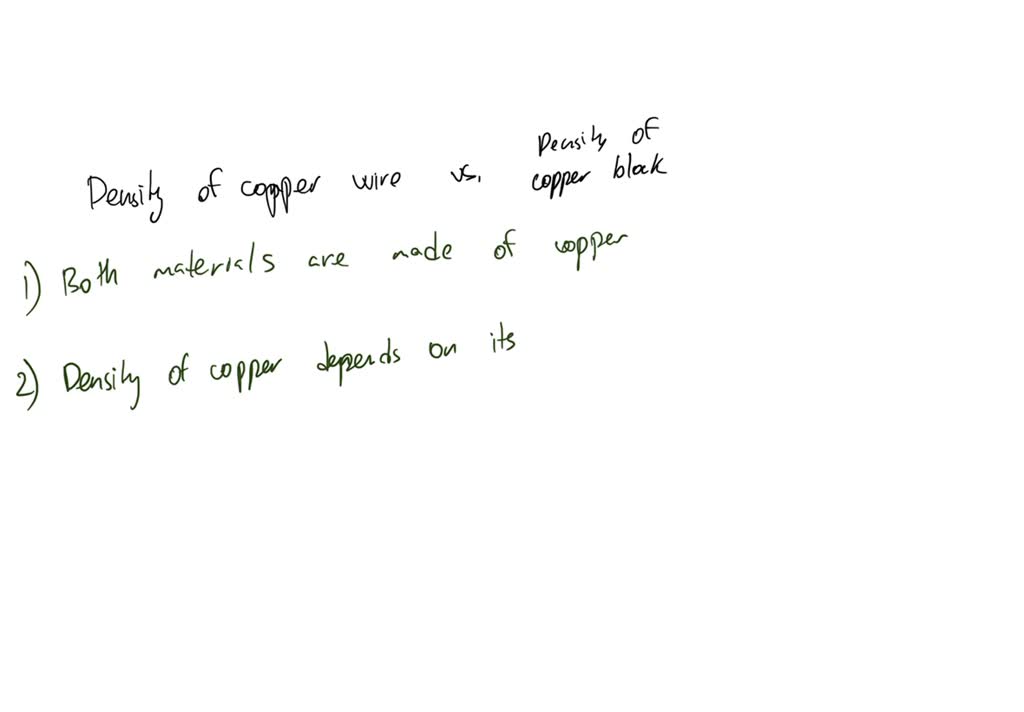 Density of copper wire vs. Density of copper block
1) Both materials are made of copper
2) Density of copper depends on its